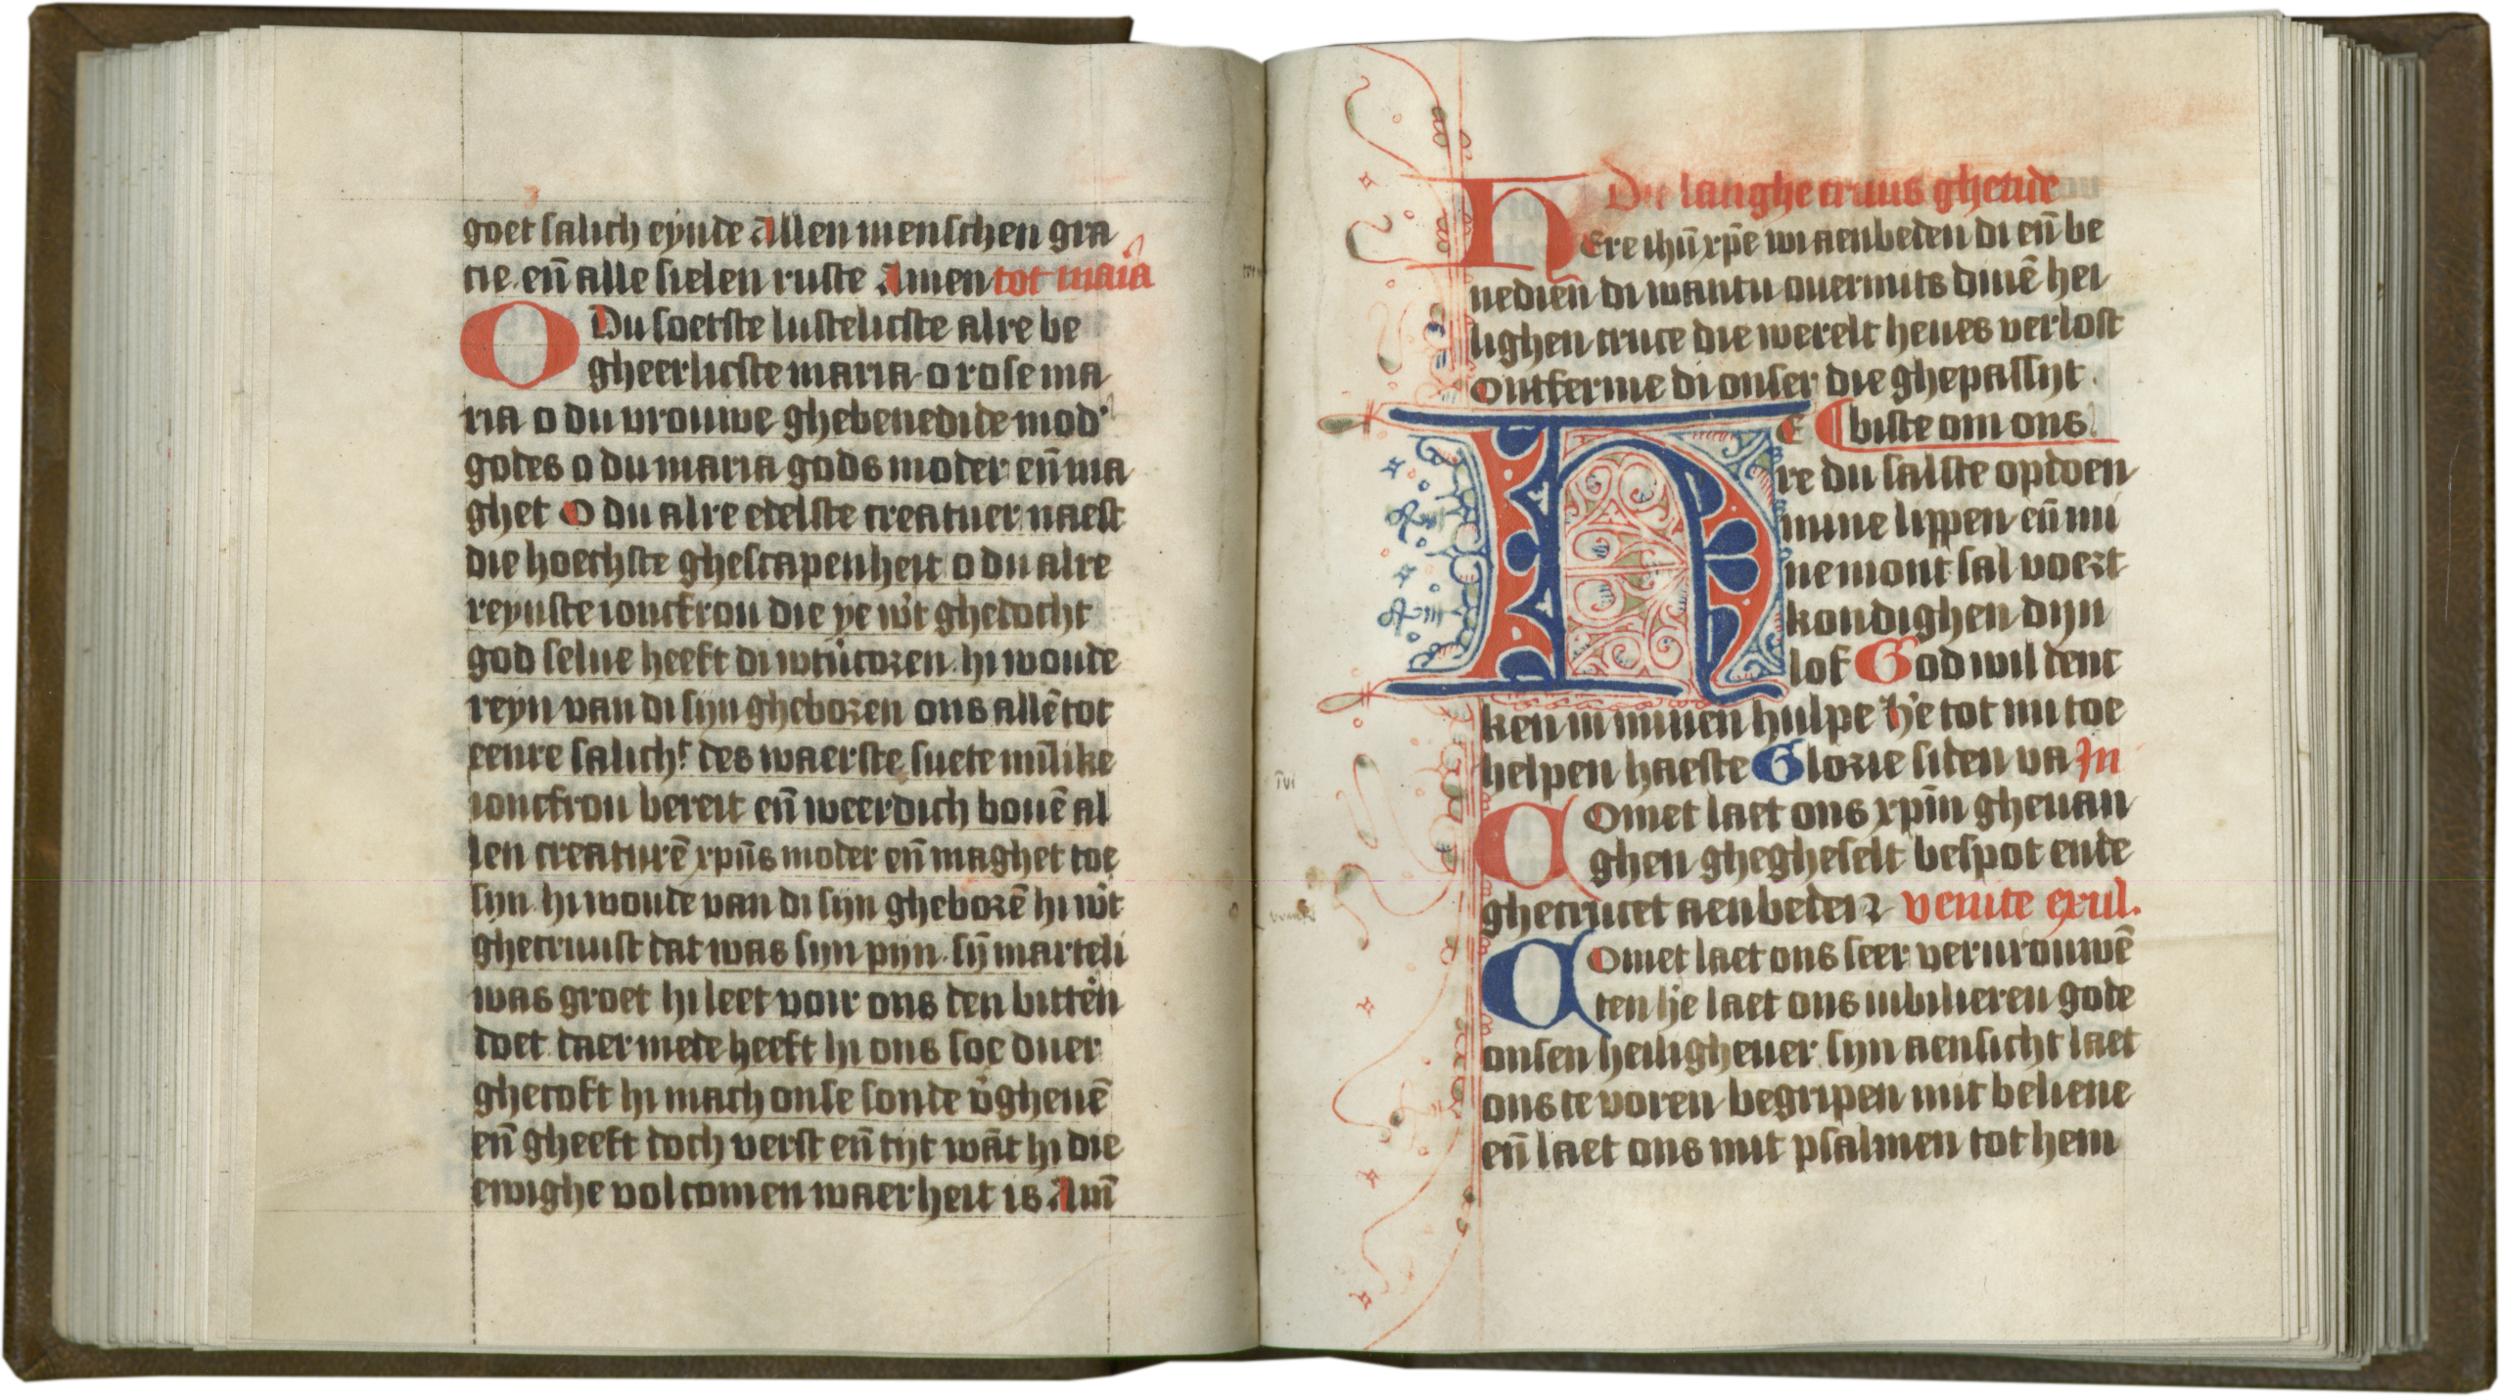 goet salich eynde Allen menschen gra
cie. eñ alle sielen ruste Amen tot maria
O Du soetste lustelicste alre be
gheerlicste maria o rose ma
ria o du vrouwe ghebenedide mod'
godes o du maria gods moder eñ ma
ghet O du alre edelste creatuer naest
die hoechste ghescapenheit o du alre
reynste ioncfrou die ye wt ghedocht
god selue heeft di wtücozen. hi woude
reyn van di sijn ghebozen ons allē tot
eenre salich.t des waerste suete mīlike
ioncfrou bereit eñ weerdich bouē al
len creaturē xpūs moder eñ maghet toe
sijn. hi woude van di sijn ghebozē hi wt
ghecruust dat was sijn pijn. sȳ marteli
was groet hi leet voir ons den bitteñ
doet daer mede heeft hi ons soe duer
ghecoft hi mach onse sonde v̉gheuē
eñ gheeft doch verst eñ tijt wāt hi die
ewighe volcomen waerheit is Amē
Die langhe cruus ghetide
HEre ihū xp̄e wi aenbeden di eñ be
nedien di wantu ouermits dinē hei
lighen cruce die werelt heues verlost
Ontferme di onser die ghepassijt
HE biste om ons
re du salste opdoen
mine lippen eñ mi
ne mont sal voezt
kondighen dijn
lof God wil denc
ken in minen hulpe h'e tot mi toe
helpen haeste Glozie si den va In
COmet laet ons xpm̄ gheuan
ghen ghegheselt bespot ende
ghecrucet aenbeden venite exul.
COmet laet ons seer vervrouwē
den h'e laet ons iubilieren gode
onsen heiligheuer sijn aensicht laet
ons te voren begripen mit beliene
eñ laet ons mit psalmen tot hem